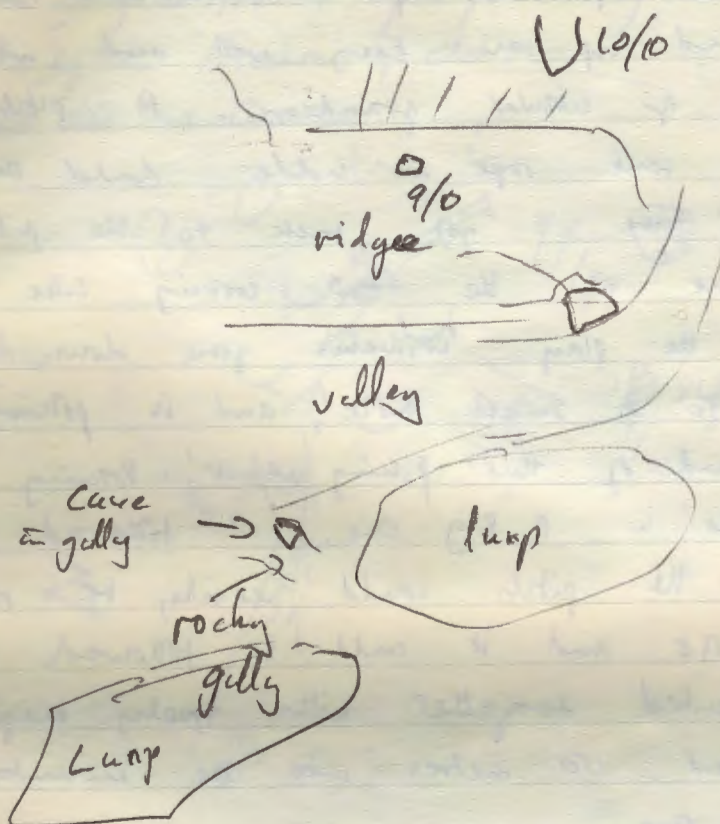 10/10
9/0
ridge
valley
Cave
in gully
lump
rocky
gully
Lump